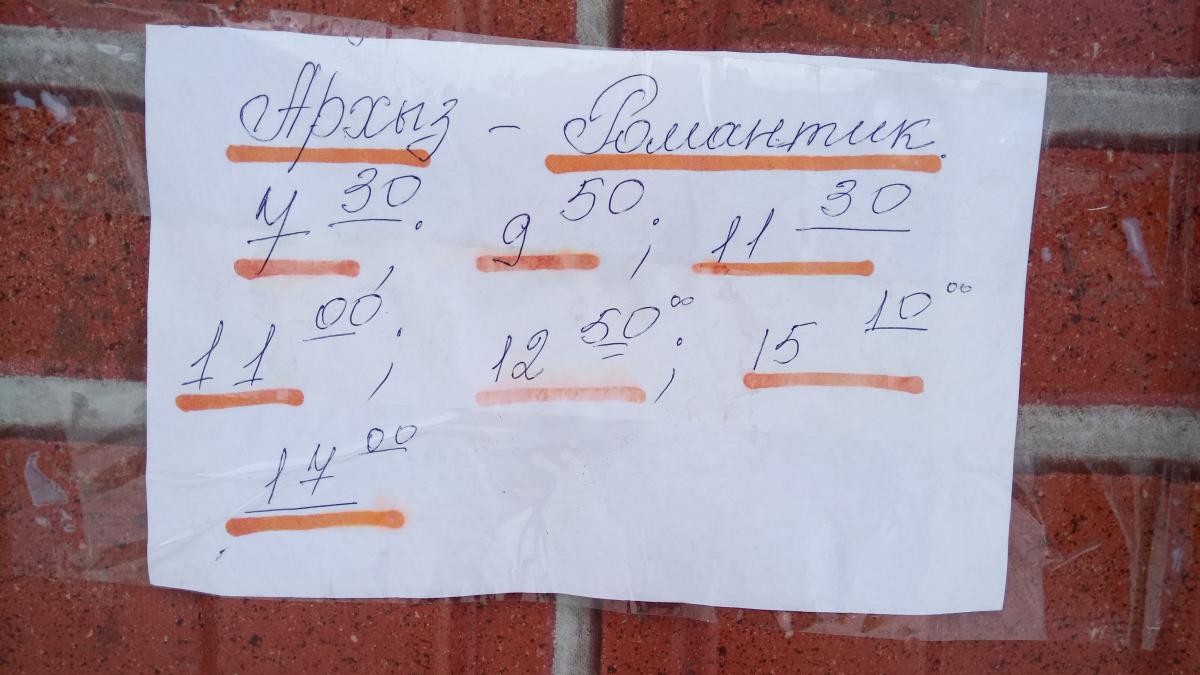 Архыз - Романтик.
7 30; 9 50; 11 30
11 00; 12 50 00; 15 10 00
17 00